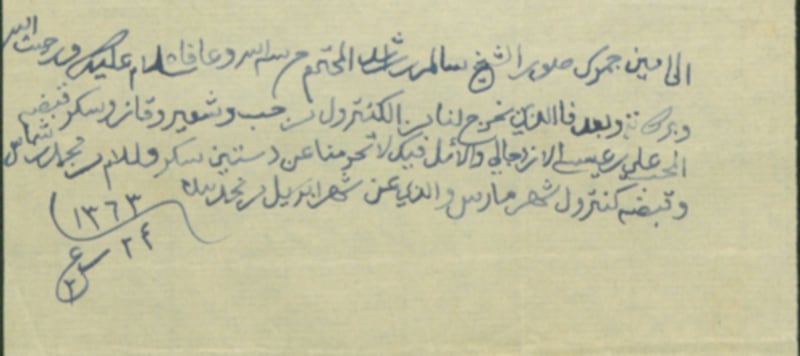 الى امين جمرك صور الشيخ سالم بن راشد المحترم سلمه الله وعافاه سلام عليك ورحمت الله
وبركاته وبعد فا الذي نخرج لنا من الكنترول من حب وشعير وقاز وسكر قبضه
المحب علي بن عيسى الزدجالي والأمل فيك لا تحرمنا عن دستين سكر والسلام من محمد بن شماس
وقبضه كنترول شهر مارس والذي عن شهر ابريل من نجد
١٣٦٣
٢٤
ع
٢